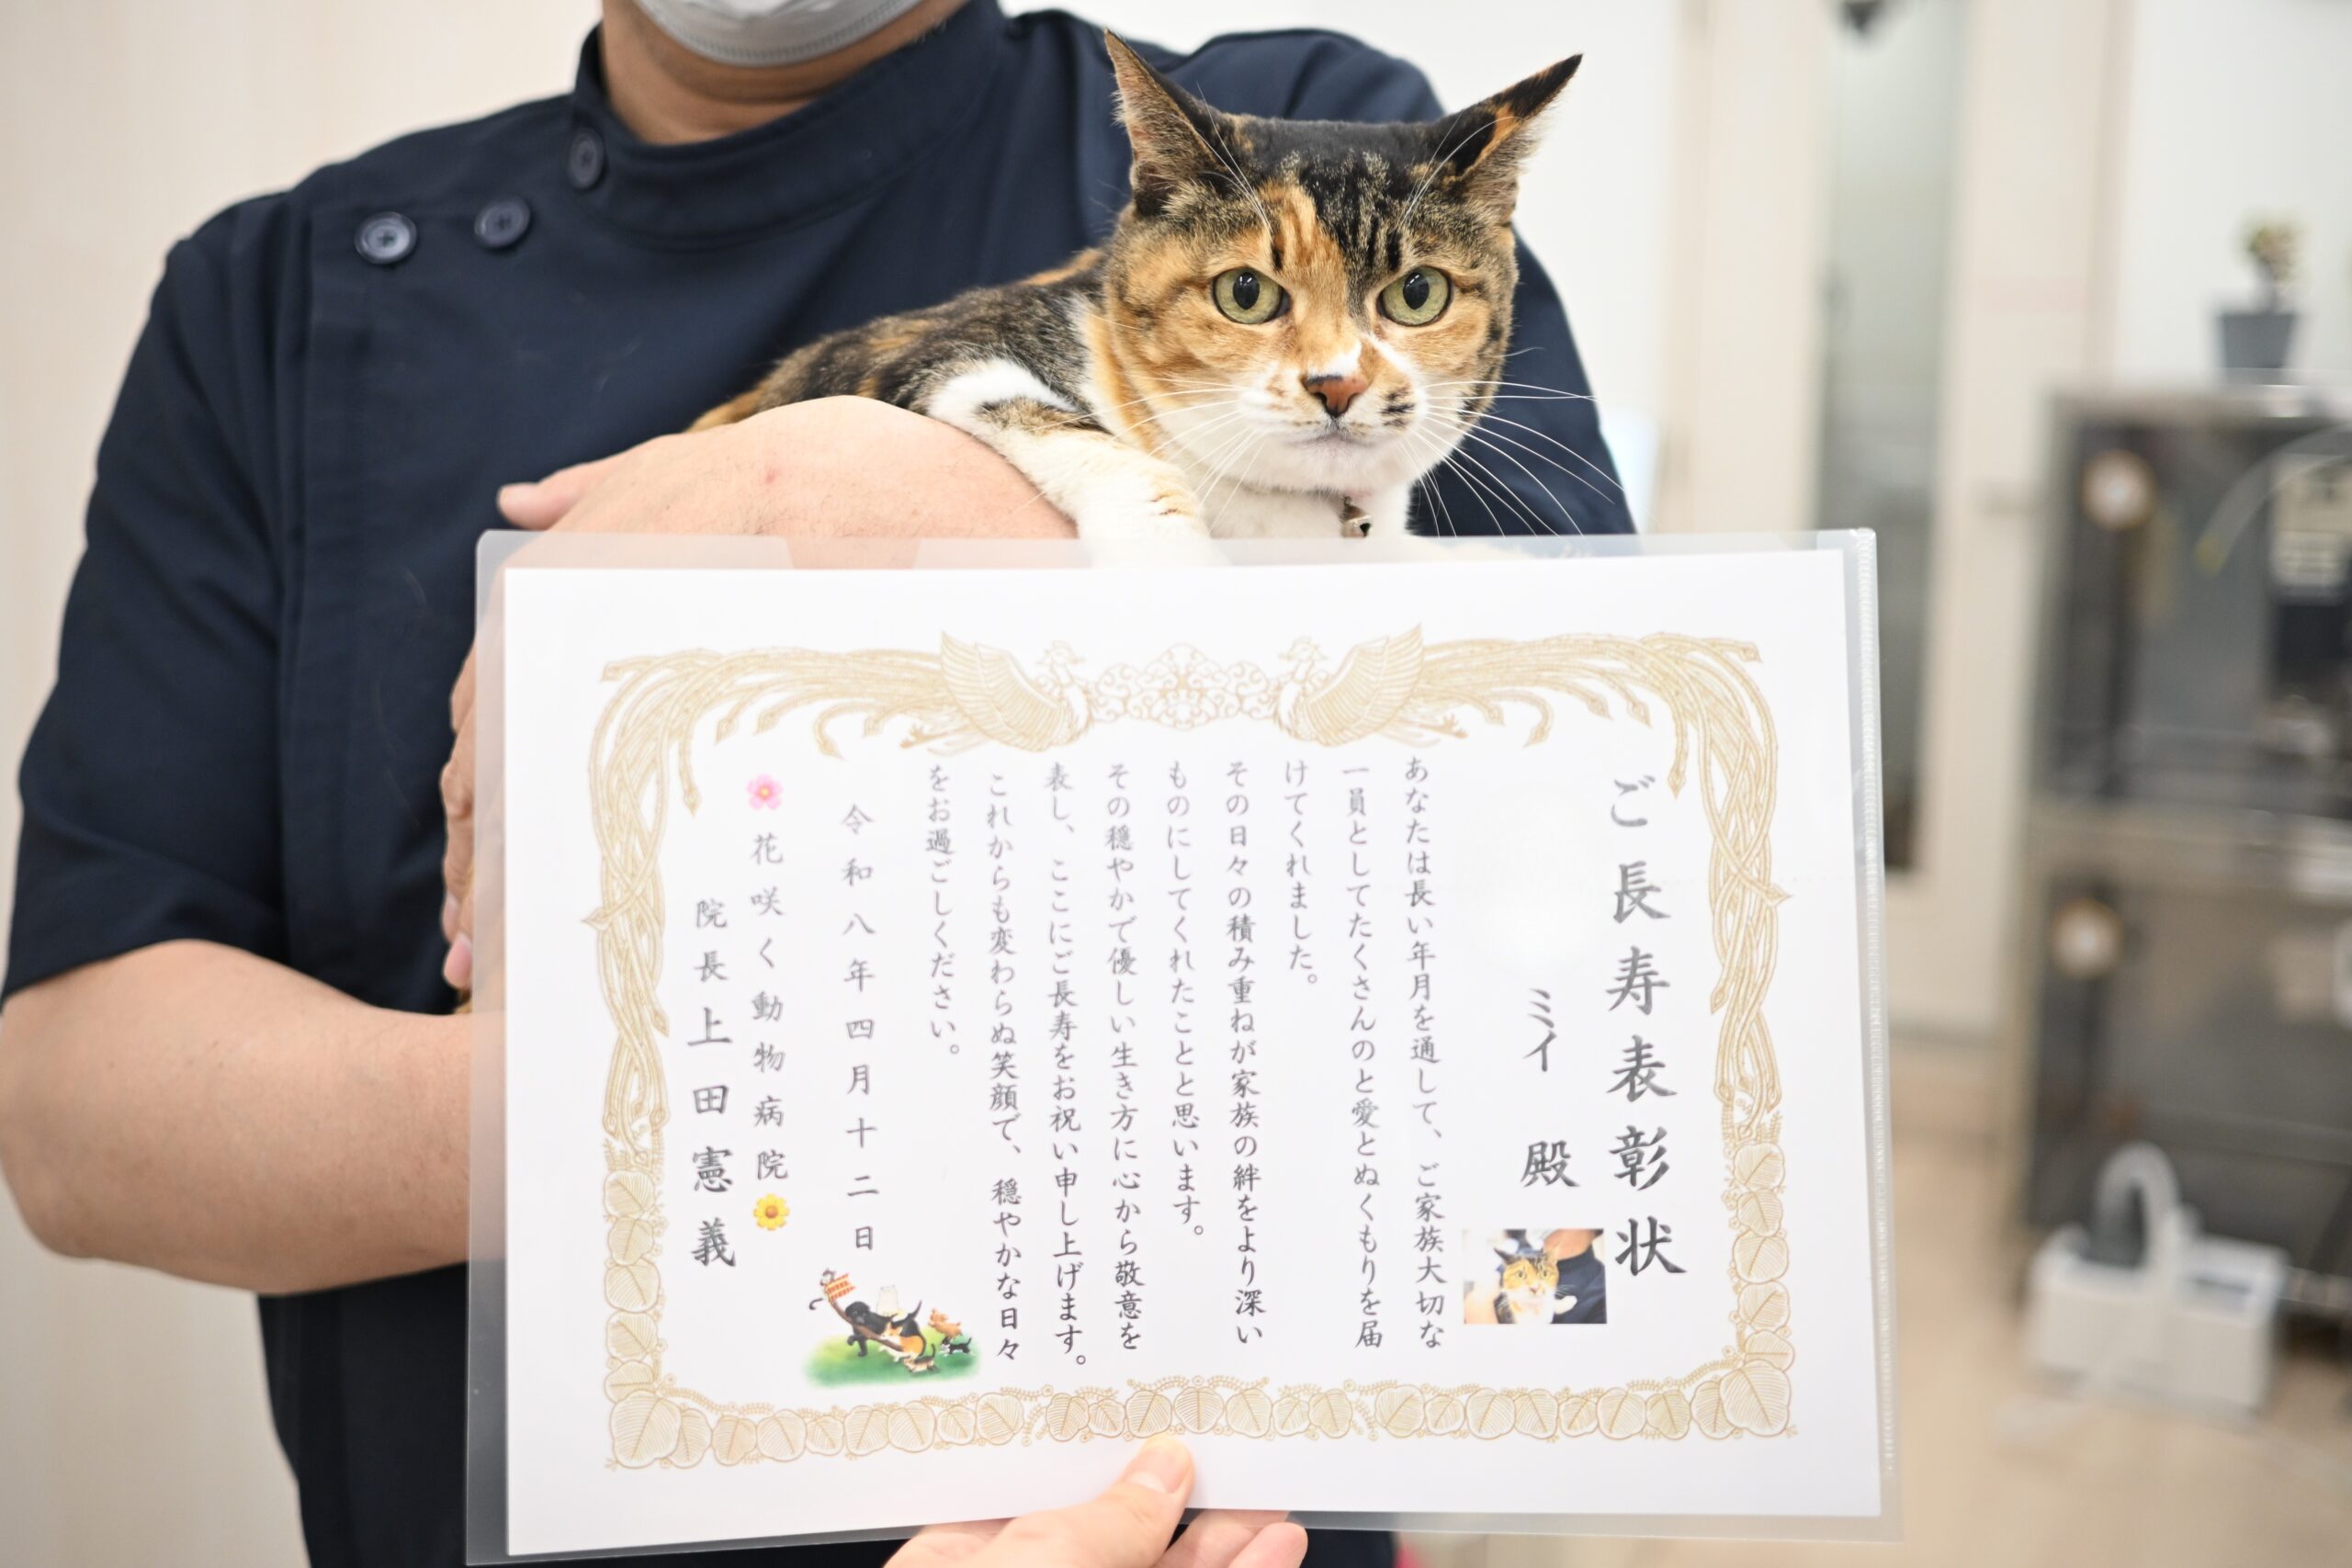 ご長寿表彰状
ミイ 殿
あなたは長い年月を通して、ご家族大切な
一員としてたくさんのと愛とぬくもりを届
けてくれました。
その日々の積み重ねが家族の絆をより深い
ものにしてくれたことと思います。
その穏やかで優しい生き方に心から敬意を
表し、ここにご長寿をお祝い申し上げます。
これからも変わらぬ笑顔で、穏やかな日々
をお過ごしください。
令和八年四月十二日
花咲く動物病院
院長上田憲義